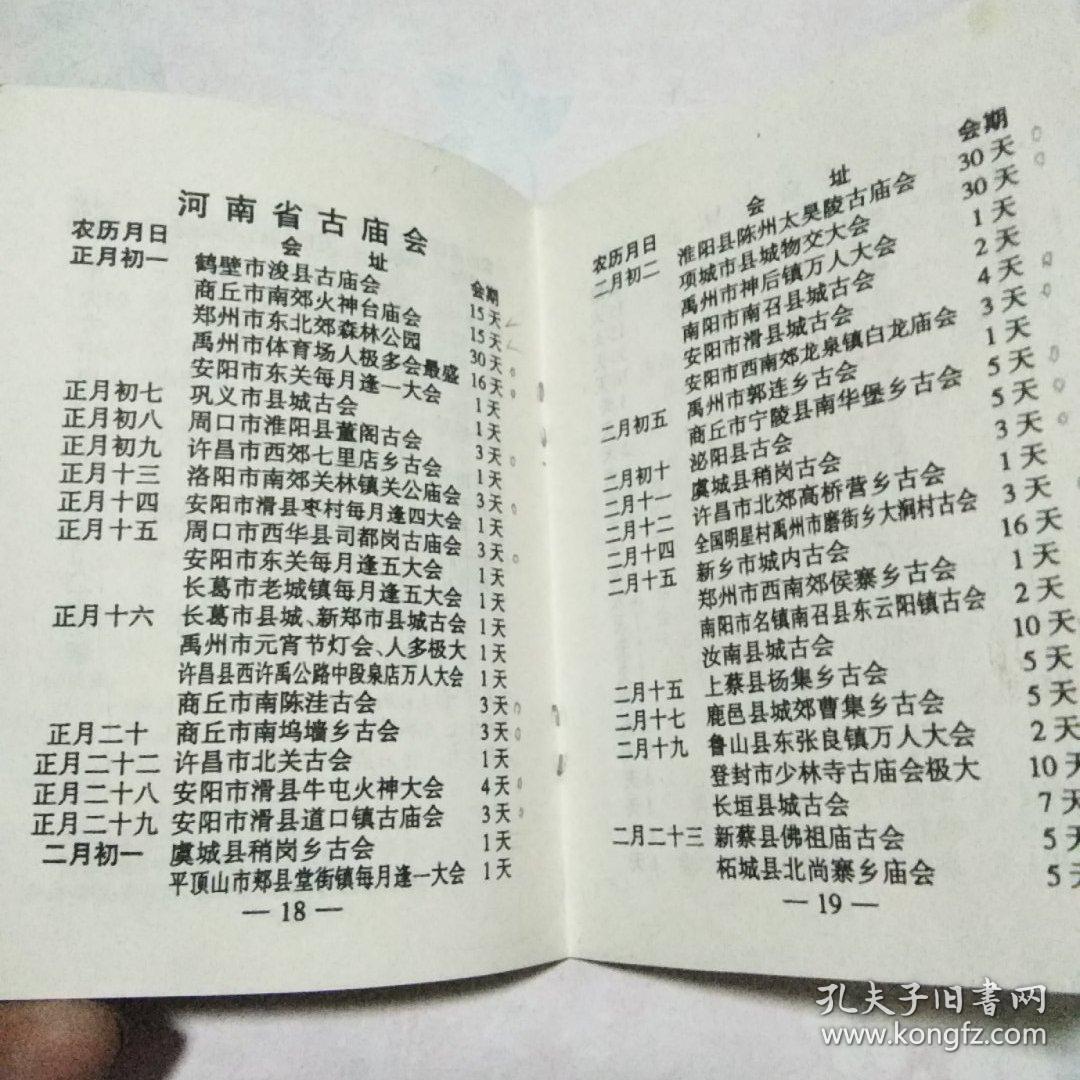 河南省古庙会
农历月日 会址 会期
正月初一 鹤壁市浚县古庙会 15天
商丘市南郊火神台庙会 15天
郑州市东北郊森林公园 30天
禹州市体育场人极多会最盛 16天
安阳市东关每月逢一大会 1天
正月初七 巩义市县城古会 1天
正月初八 周口市淮阳县董阁古会 3天
正月初九 许昌市西郊七里店乡古会 1天
正月十三 洛阳市南郊关林镇关公庙会 3天
正月十四 安阳市滑县枣村每月逢四大会 1天
正月十五 周口市西华县司都岗古庙会 3天
安阳市东关每月逢五大会 1天
长葛市老城镇每月逢五大会 1天
正月十六 长葛市县城、新郑市县城古会 1天
禹州市元宵节灯会、人多极大 1天
许昌县西许禹公路中段泉店万人大会 1天
商丘市南陈洼古会 3天
正月二十 商丘市南坞墙乡古会 3天
正月二十二 许昌市北关古会 1天
正月二十八 安阳市滑县牛屯火神大会 4天
正月二十九 安阳市滑县道口镇古庙会 3天
二月初一 虞城县稍岗乡古会 1天
平顶山市郏县堂街镇每月逢一大会 1天
— 18 —
农历月日 会址 会期
二月初二 淮阳县陈州太昊陵古庙会 30天
项城市县城物交大会 30天
禹州市神后镇万人大会 1天
南阳市南召县城古会 2天
安阳市滑县城古会 4天
安阳市西南郊龙泉镇白龙庙会 3天
二月初五 禹州市郭连乡古会 1天
商丘市宁陵县南华堡乡古会 5天
二月初十 泌阳县古会 5天
二月十一 虞城县稍岗古会 3天
二月十二 许昌市北郊高桥营乡古会 1天
二月十四 全国明星村禹州市磨街乡大涧村古会 3天
二月十五 新乡市城内古会 16天
郑州市西南郊侯寨乡古会 1天
南阳市名镇南召县东云阳镇古会 2天
汝南县城古会 10天
二月十五 上蔡县杨集乡古会 5天
二月十七 鹿邑县城郊曹集乡古会 5天
二月十九 鲁山县东张良镇万人大会 2天
登封市少林寺古庙会极大 10天
长垣县城古会 7天
二月二十三 新蔡县佛祖庙古会 5天
柘城县北尚寨乡庙会 5天
— 19 —
孔夫子旧书网
www.kongfz.com